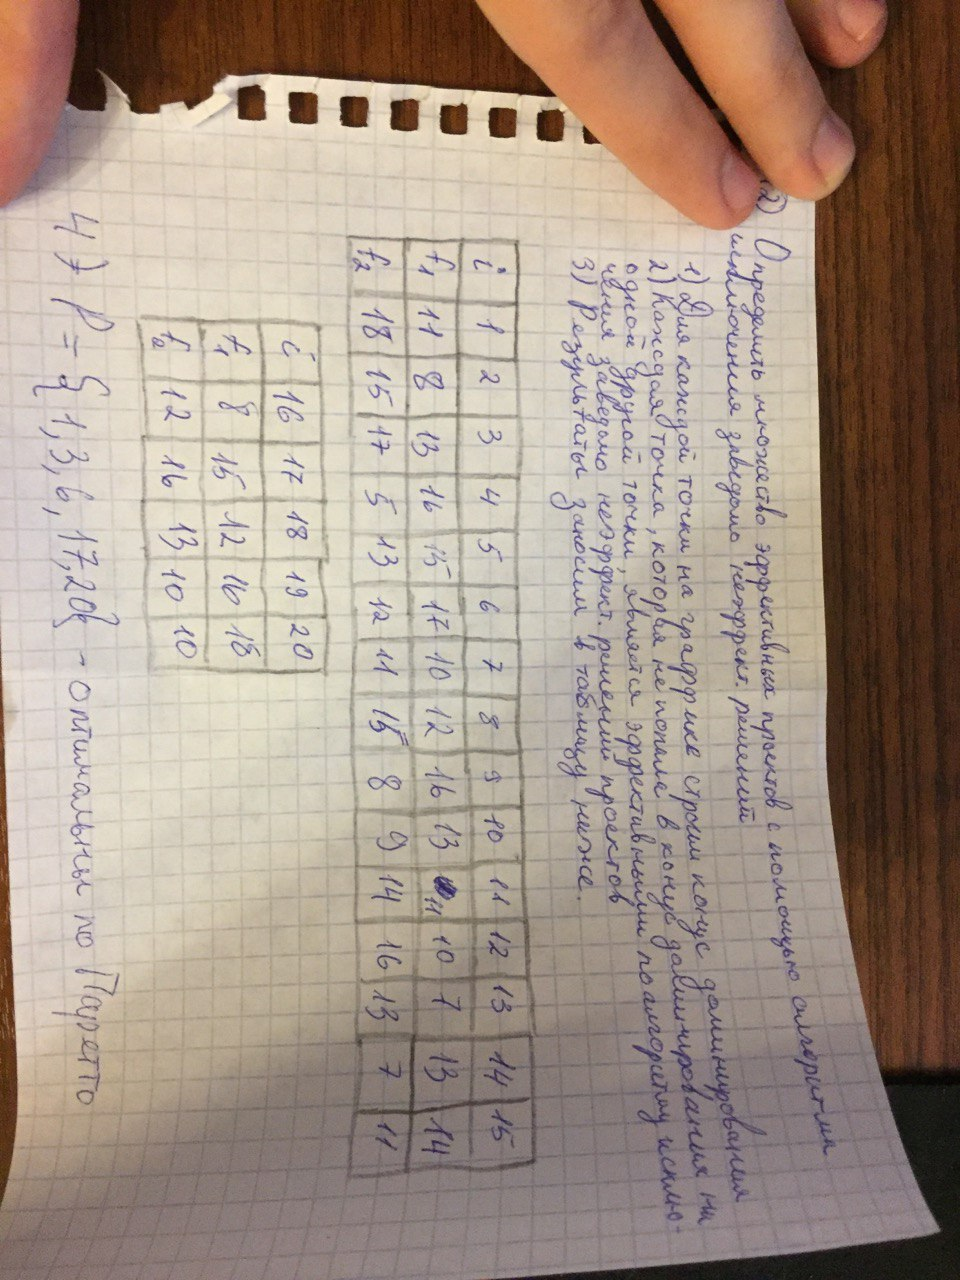 2) Определить множество эффективных проектов с помощью алгоритма
исключения заведомо неэффект. решений
1) Для каждой точки на графике строим конус доминирования
2) Каждая точка, которая не попала в конус доминирования ни
одной другой точки, является эффективными по алгоритму исклю-
чения заведомо неэффект. решений проектов
3) Результаты заносим в таблицу ниже.
i 1 2 3 4 5 6 7 8 9 10 11 12 13 14 15
f1 11 8 13 16 15 17 10 12 16 13 11 10 7 13 14
f2 18 15 17 5 13 12 11 15 8 9 14 16 13 7 11
i 16 17 18 19 20
f1 8 15 12 16 18
f2 12 16 13 10 10
4) P = {1,3,6,17,20} - оптимальны по Паретто